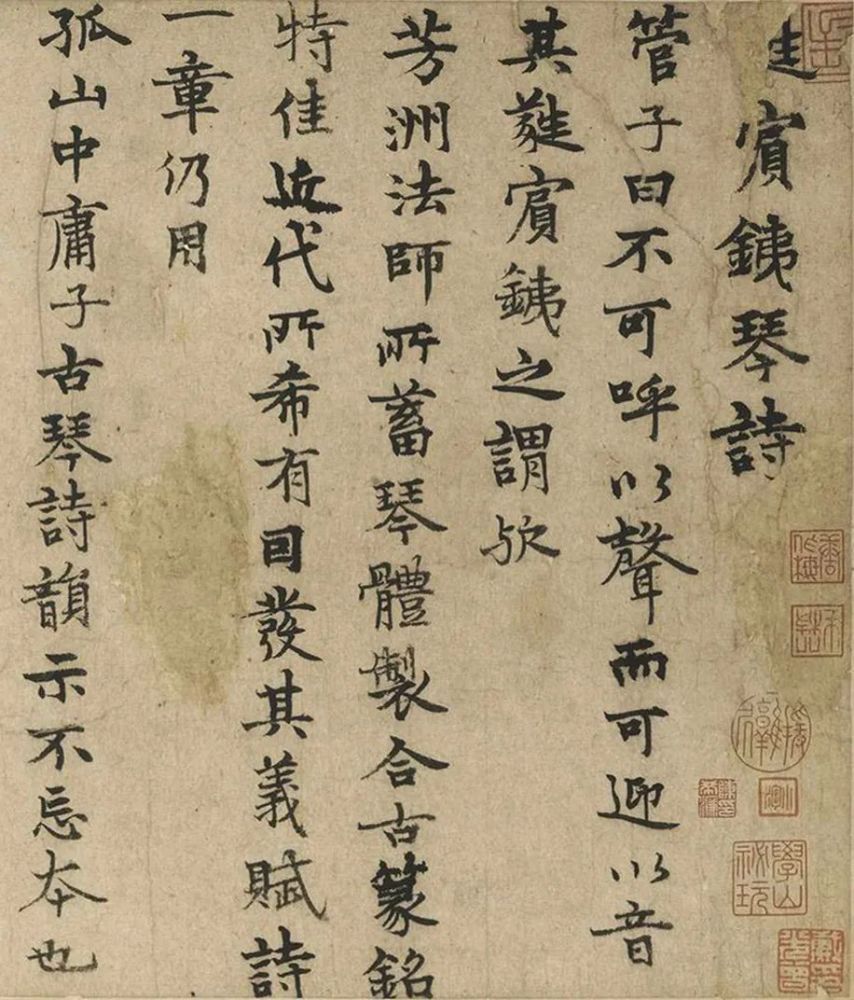 蕤賓銕琴詩
管子曰不可呼以聲而可迎以音
其蕤賓銕之謂欤
芳洲法師所蓄琴體製合古篆銘
特佳近代所希有囙發其義賦詩
一章仍用
孤山中庸子古琴詩韻示不忘本也
學山祕玩